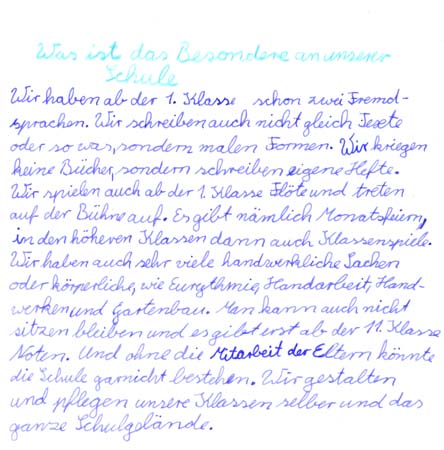 Was ist das Besondere an unserer
Schule
Wir haben ab der 1. Klasse schon zwei Fremd-
sprachen. Wir schreiben auch nicht gleich Texte
oder so was, sondern malen Formen. Wir kriegen
keine Bücher, sondern schreiben eigene Hefte.
Wir spielen auch ab der 1. Klasse Flöte und treten
auf der Bühne auf. Es gibt nämlich Monatsfeiern,
in den höheren Klassen dann auch Klassenspiele.
Wir haben auch sehr viele handwerkliche Sachen
oder körperliche, wie Eurythmie, Handarbeit, Hand-
werken und Gartenbau. Man kann auch nicht
sitzen bleiben und es gibt erst ab der 11. Klasse
Noten. Und ohne die Mitarbeit der Eltern könnte
die Schule garnicht bestehen. Wir gestalten
und pflegen unsere Klassen selber und das
ganze Schulgelände.